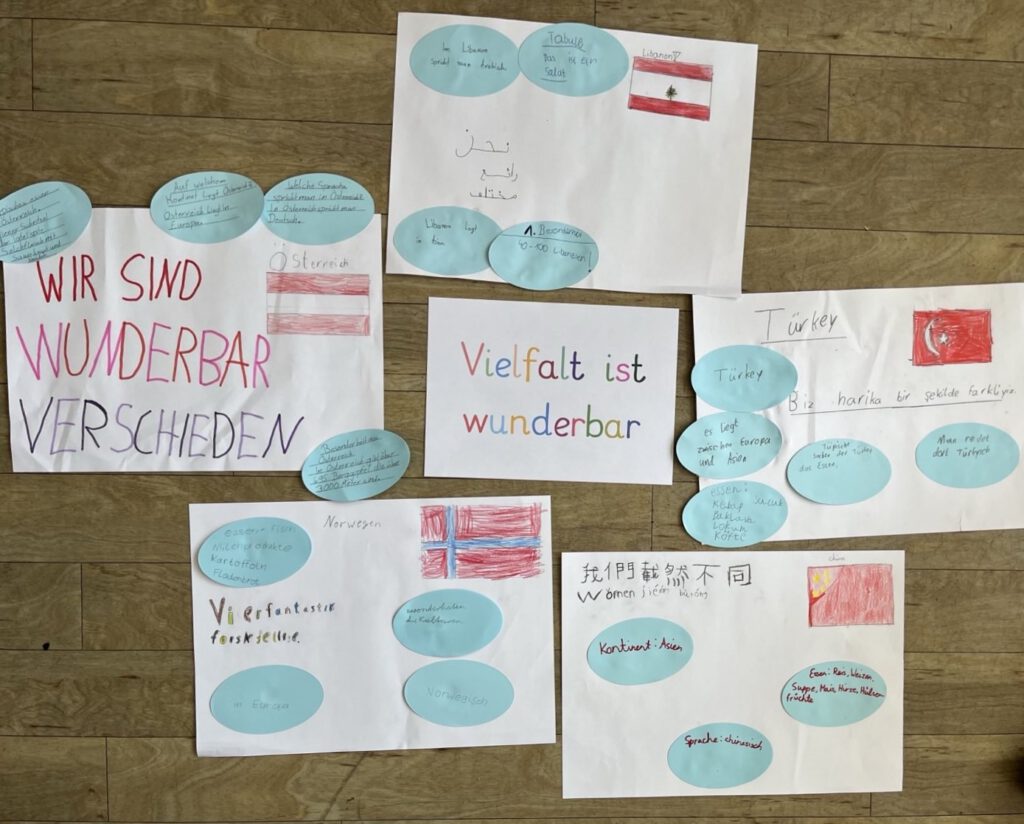 Im Libanon
spricht man Arabisch
Tabule
Das ist ein
Salat
Libanon
نحن
رائع
مختلف
Libanon liegt
in
1. Besonderheit
40-100
Auf welchem
Kontinet liegt Österreich
Österreich liegt in
Europa.
Welche Sprache
spricht man in Österreich
In Österreich spricht man
Deutsch.
Österreich.
WIR SIND
WUNDERBAR
VERSCHIEDEN
Österreich
Österreich
In Österreich gibt über
3000 Meter
Vielfalt ist
wunderbar
Türkey
Türkey
Biz harika bir şekilde farkliyiz.
es liegt
zwischen Europa
und Asien
das Essen.
Man redet
dort Türkisch
essen:
Kebap Sucuk
Baklava
Lokum
Köfte
Norwegen
Milchprodukte
Kartoffeln
Fladenbrot
Vi er fantastik
forskjellne.
in Europa
Norwegisch
china
我們截然不同
Wǒmen jiérán bùtóng
Kontinent: Asien
Essen: Reis, Weizen,
Suppe, Mais, Hirse, Hülsen
früchte
Sprache: chinesisch